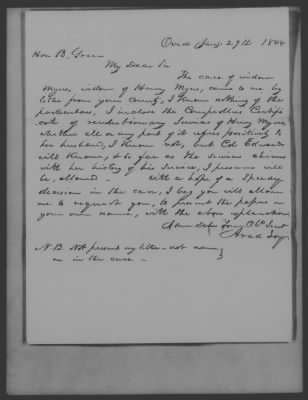 Ovid Jany. 29th 1844
Hon B. Green
My Dear Sir
The case of widow
Myres, widow of Henry Myres, came to me by
letter from your County, I know nothing of the
particulars, I inclose the Comptrollers Certifi
cate of revolutionary service of Henry Myres,
whether all or any part of it refers positively to
her husband, I know not, but Col Edwards
will know, & so far as the service ahrees
with her history of his service, I presume will
be, allowed - with a hope of a speedy
decision in the case, I beg you will allow
me to request you, to present the papers in
your own name, with the above explanations
I am dear Sir Your Obt Servt
Arad Joy
N.B. Not present my letter - not name
me in the case -